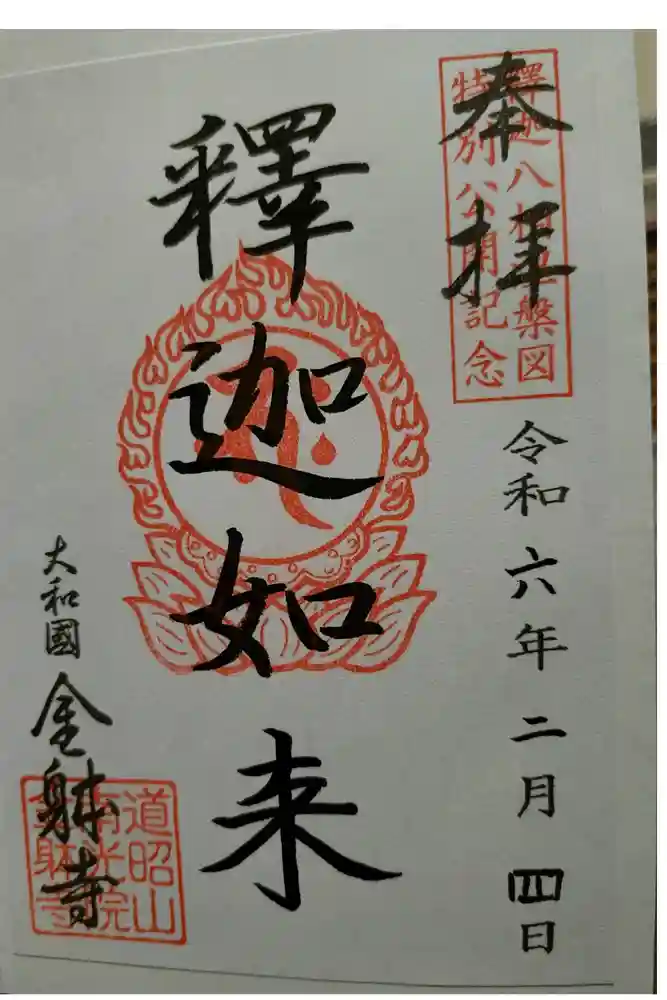 奉拝
釋迦八相涅槃図
特別公開記念
令和六年二月四日
釋迦如来
大和國 金躰寺
道昭山
南光院
金躰寺